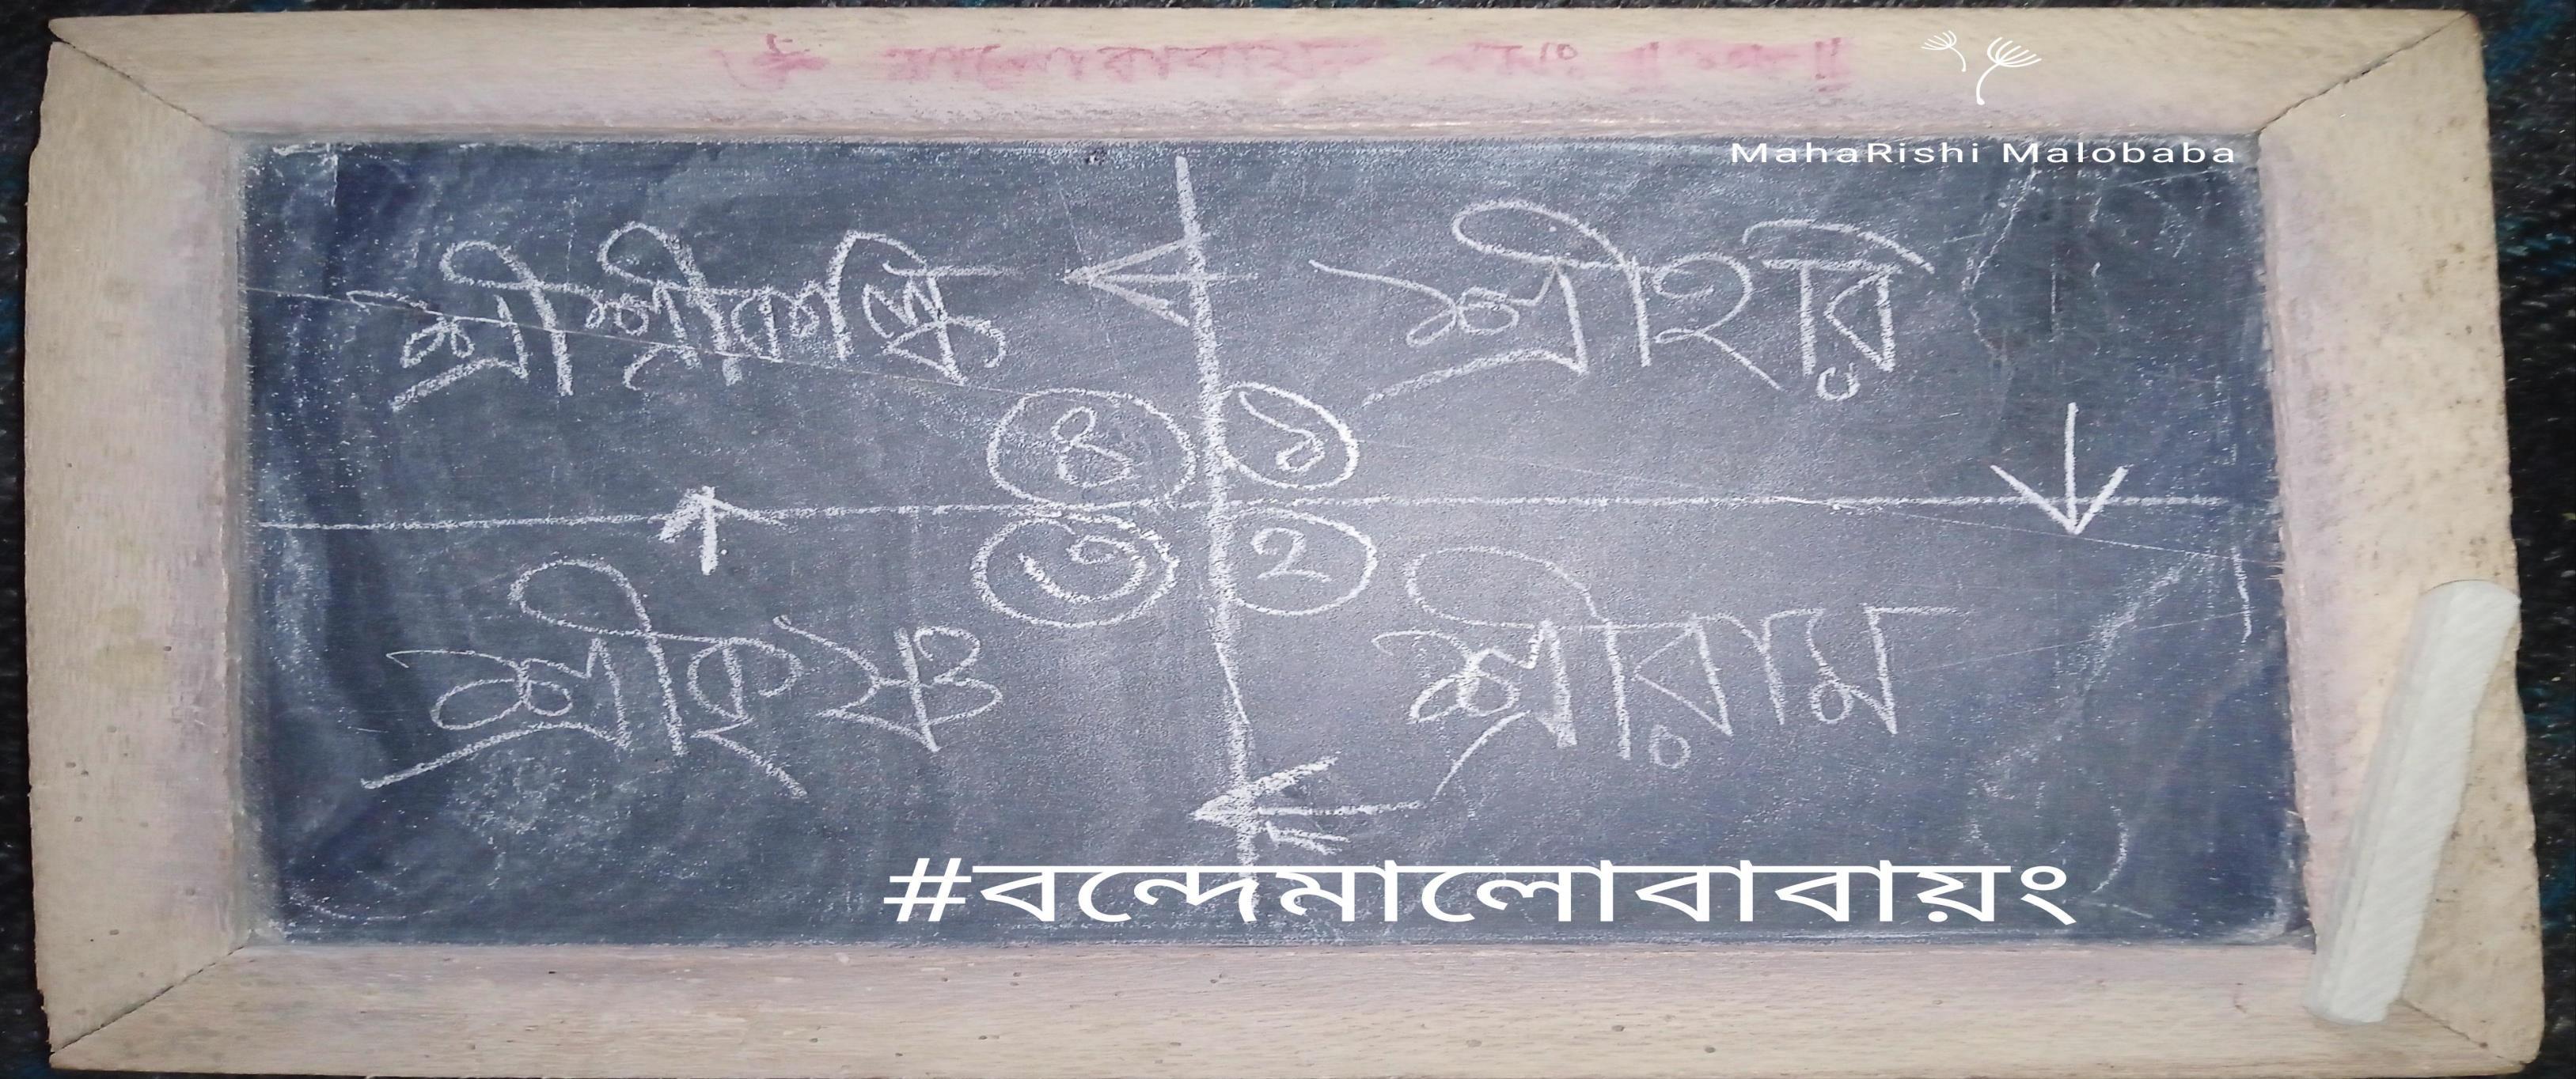 MahaRishi Malobaba
শ্রীশ্রীকল্কি
শ্রীহরি
৪
১
৩
২
শ্রীকৃষ্ণ
শ্রীরাম
#বন্দেমালোবাবায়ং